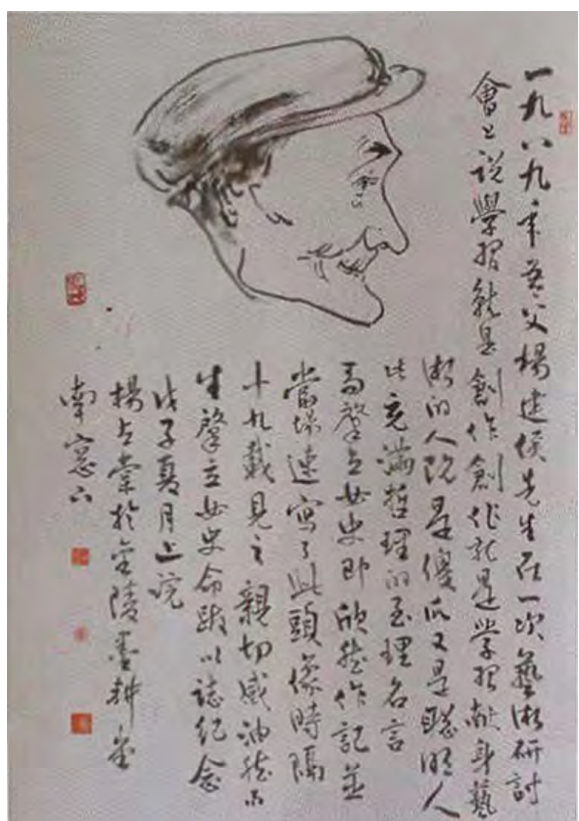 一九八九年吾父楊建侯先生在一次藝術研討
會上說學習就是創作創作就是學習獻身藝
術的人既是傻瓜又是聰明人
此充滿哲理的至理名言
馬肇立女史即欣然作記並
當場速寫了此頭像時隔
十九載見之親切感油然而
生肇立女史命跋以誌紀念
戊子夏月上浣
楊上棠於金陵墨耕堂
南窗下